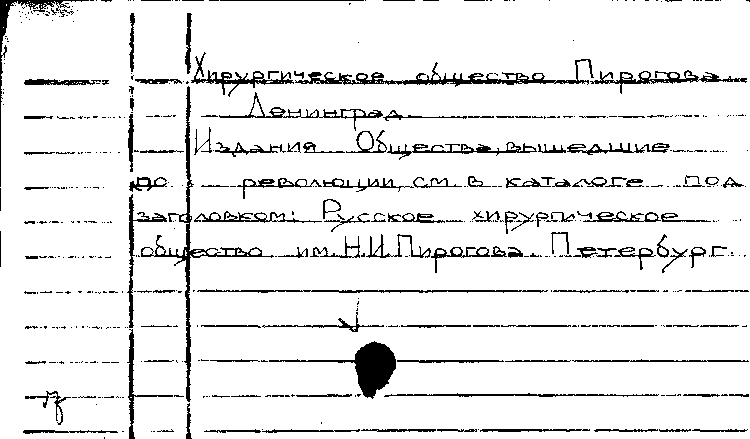 Хирургическое общество Пирогова.
Ленинград.
Издания Общества, вышедшие
до революции, см. в каталоге под
заголовком: Русское хирургическое
общество им. Н.И. Пирогова. Петербург.